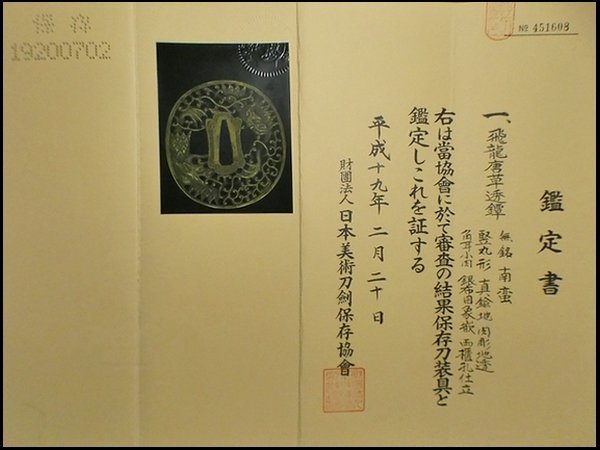 No 451608
鑑定書
一、飛龍唐草透鐔
無銘 南蛮
竪丸形 真鍮地 肉彫地透
角耳小肉 銀布目象嵌 両櫃孔仕立
右は當協會に於て審査の結果保存刀装具と
鑑定しこれを証する
平成十九年二月二十日
財團法人 日本美術刀劍保存協會
保存
19200702